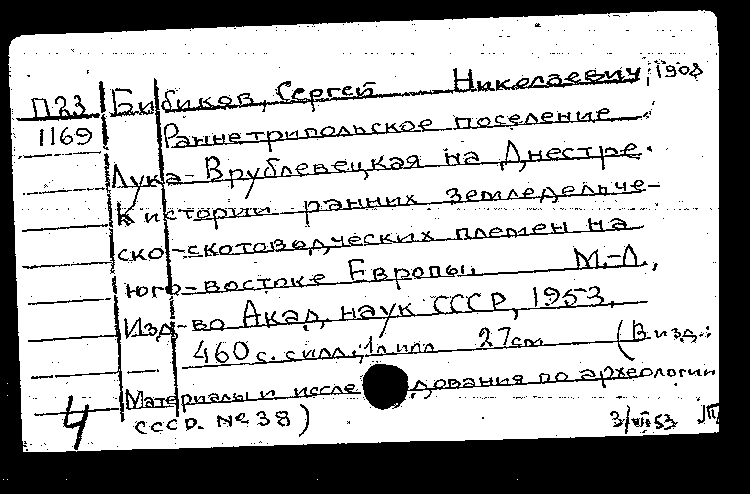 П23 Бибиков, Сергей Николаевич, 1908
1169 Раннетрипольское поселение
Лука-Врублевецкая на Днестре.
К истории ранних земледельче-
ско-скотоводческих племен на
юго-востоке Европы. М.-Л.,
Изд-во Акад. наук СССР, 1953.
460 с. с илл.; 1 л илл 27 см (В изд.:
Материалы и исследования по археологии
СССР. № 38)
4 3/VII 53